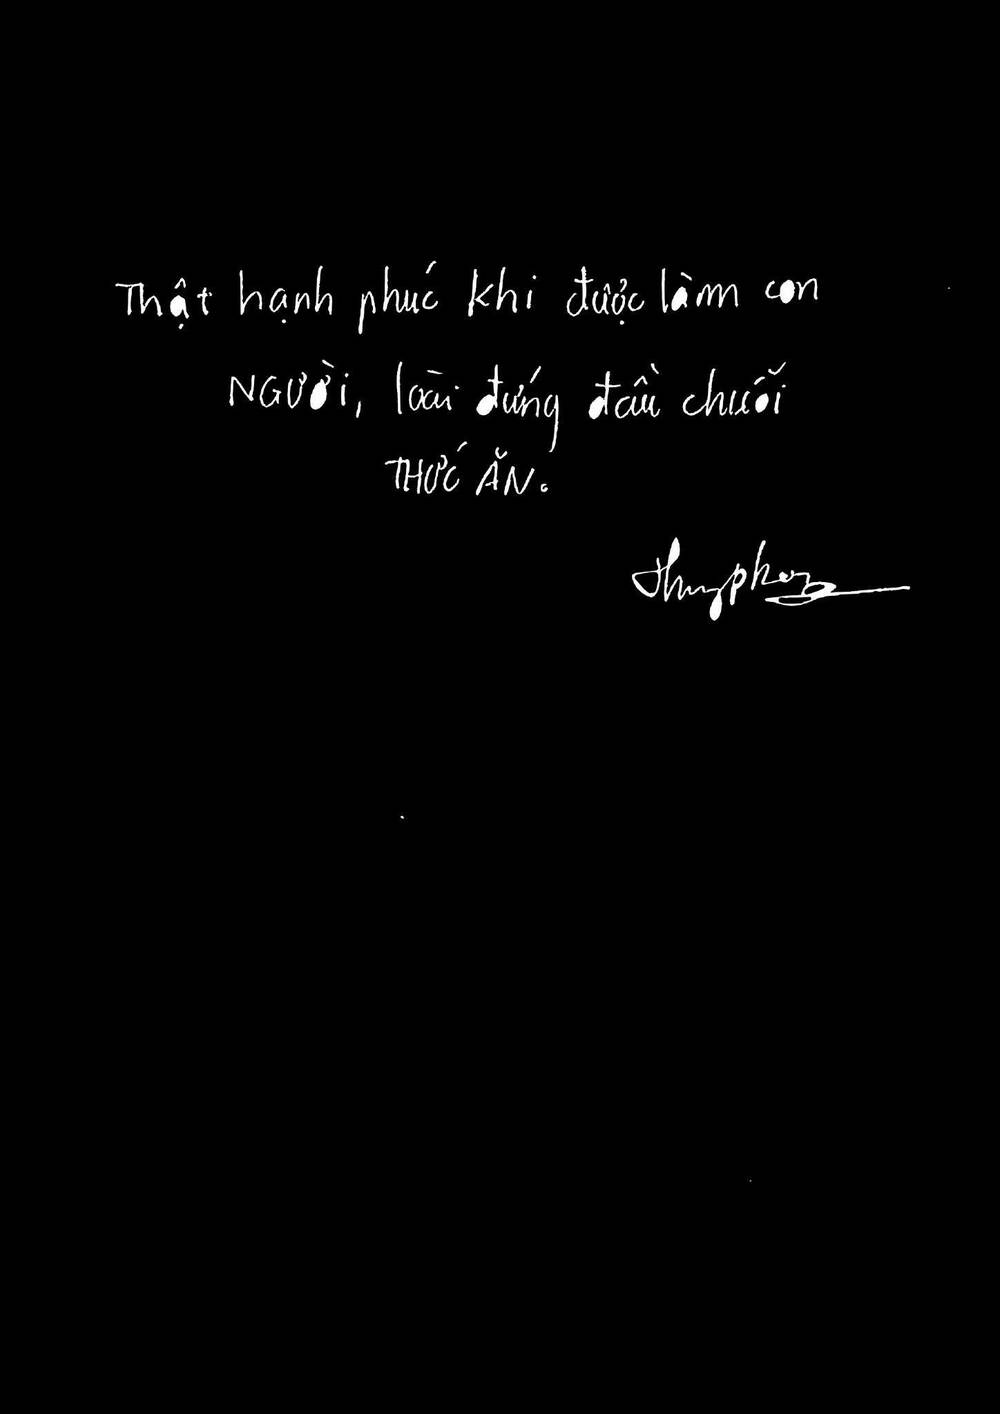 Thật hạnh phúc khi được làm con
NGƯỜI, loài đứng đầu chuỗi
THỨC ĂN.